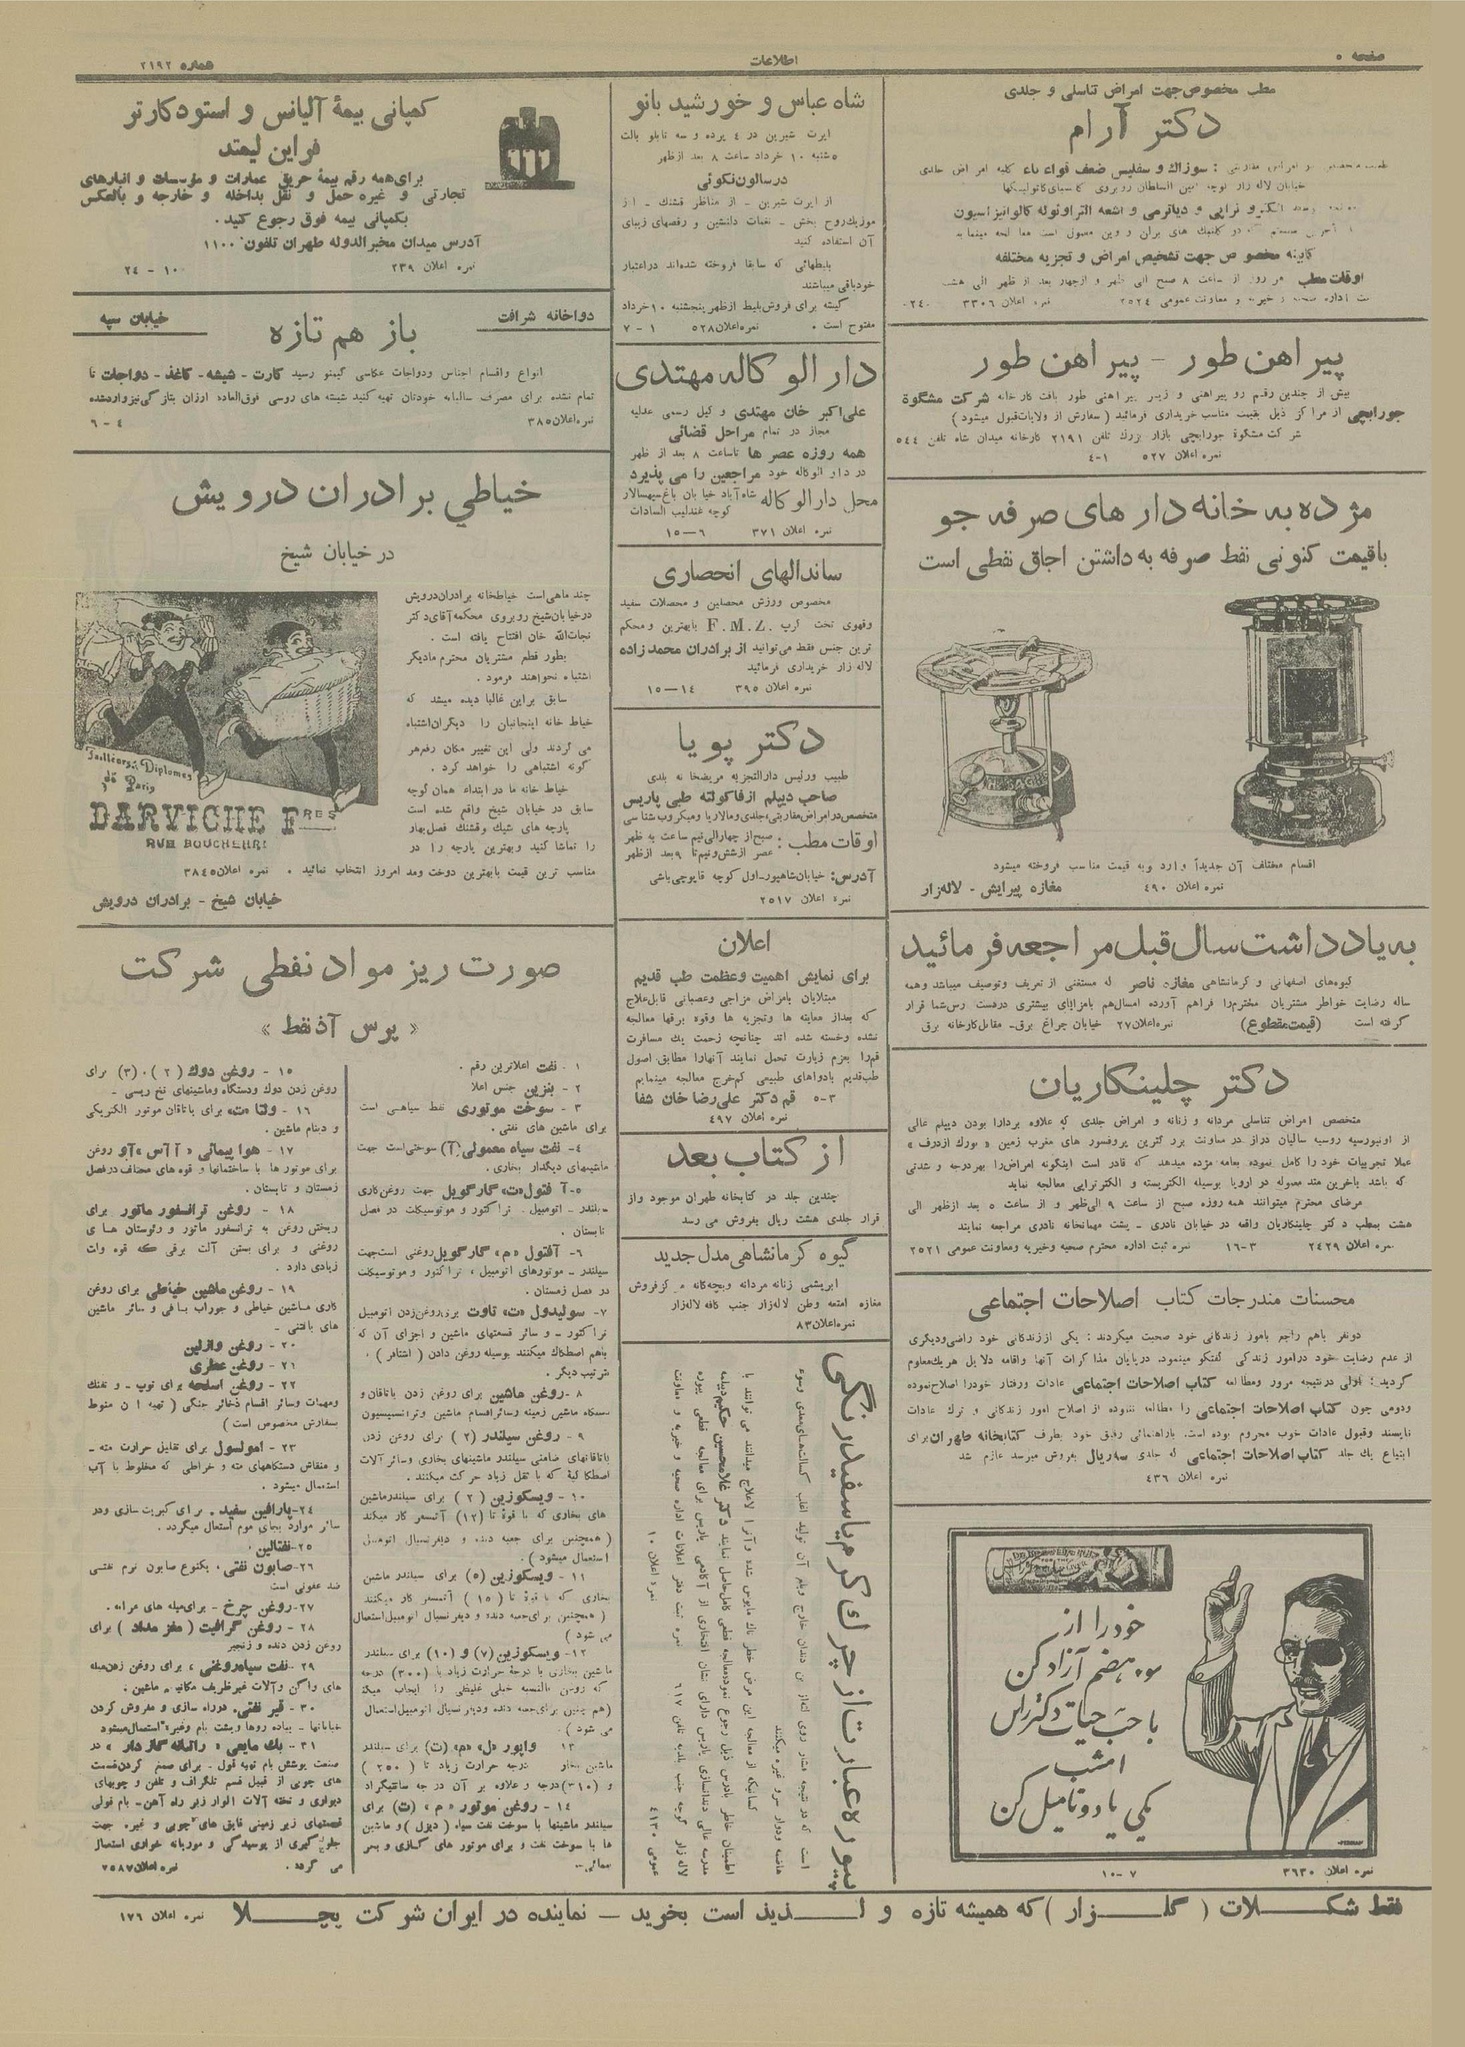 صفحه ۵
اطلاعات
شماره ۲۱۹۲
مطب مخصوص جهت امراض تناسلی و جلدی
دکتر آرام
سوزاك و سفلیس ضعف قواء باء کلیه امراض جلدی
خیابان لاله زار کوچه امین السلطان روبروی
کابینه مخصوص جهت تشخیص امراض و تجزیه مختلفه
اوقات مطب هر روز از ساعت ۸ صبح الی ظهر و از چهار بعد از ظهر الی هشت
اداره صحیه و خیریه و معاونت عمومی ۲۵۲۴ نمره اعلان ۳۳۰۶
پیراهن طور - پیراهن طور
بیش از چندین رقم رو پیراهنی و زیر پیراهنی طور بافت کارخانه شرکت مشگوة
جورابچی از مراکز ذیل بقیمت مناسب خریداری فرمائید ( سفارش از ولایات قبول میشود )
شرکت مشگوة جورابچی بازار بزرك تلفن ۲۱۹۱ کارخانه میدان شاه تلفن ۵۴۴
نمره اعلان ۵۲۷ ۱-۴
مژده به خانه دار های صرفه جو
باقیمت کنونی نفط صرفه به داشتن اجاق نفطی است
اقسام مختلف آن جدیداً وارد وبه قیمت مناسب فروخته میشود
نمره اعلان ۴۹۰ مغازه پیرایش - لاله‌زار
به یادداشت سال قبل مراجعه فرمائید
گیوه‌های اصفهانی و کرمانشاهی مغازه ناصر که مستغنی از تعریف وتوصیف میباشد وهمه
ساله رضایت خواطر مشتریان محترم‌را فراهم آورده امسال‌هم بامزایای بیشتری دردست رس‌شما قرار
گرفته است (قیمت مقطوع) نمره اعلان ۲۷ خیابان چراغ برق - مقابل کارخانه برق
دکتر چلینکاریان
متخصص امراض تناسلی مردانه و زنانه و امراض جلدی که علاوه بردارا بودن دیپلم عالی
از اونیورسیه روسیه سالیان دراز در معاونت بزرگترین پروفسور های مغرب زمین
عملا تجربیات خود را کامل نموده بعامه مژده میدهد که قادر است اینگونه امراض‌را بهردرجه و شدتی
که باشد باخرین متد معموله در اروپا بوسیله الکتریسته و الکتراپی معالجه نماید
مرضای محترم میتوانند همه روزه صبح از ساعت ۹ الی‌ظهر و از ساعت ۵ بعد ازظهر الی
هشت بمطب دکتر چلینکاریان واقعه در خیابان نادری - پشت مهمانخانه نادری مراجعه نمایند
نمره اعلان ۲۴۲۹ ۳-۱۶ نمره ثبت اداره محترم صحیه وخیریه ومعاونت عمومی ۲۵۲۱
محسنات مندرجات کتاب اصلاحات اجتماعی
دونفر باهم راجع بامور زندگانی خود صحبت میکردند : یکی اززندگانی خود راضی‌ودیگری
از عدم رضایت خود درامور زندگی گفتگو مینمود. درپایان مذاکرات آنها واقامه دلایل هریك معلوم
گردید : اولی درنتیجه مرور ومطالعه کتاب اصلاحات اجتماعی عادات ورفتار خودرا اصلاح‌نموده
ودومی چون کتاب اصلاحات اجتماعی را مطالعه ننموده از اصلاح امور زندگانی و ترك عادات
ناپسند وقبول عادات خوب محروم بوده است. باراهنمائی رفیق خود بطرف کتابخانه طهران برای
ابتیاع یك جلد کتاب اصلاحات اجتماعی که جلدی سه ریال بفروش میرسد عازم شد
نمره اعلان ۴۳۶
خود را از
سوء هضم آزاد کن
با حب حیات دکتر راس
امشب
یکی یا دو تا میل کن
نمره اعلان ۳۶۳۰ ۷-۱۰
شاه عباس و خورشید بانو
اپرت شیرین در ۴ پرده و سه تابلو بالت
۵شنبه ۱۰ خرداد ساعت ۸ بعد ازظهر
درسالون نکوئی
از اپرت شیرین - از مناظر قشنك - از
موزیك روح بخش - نغمات دلنشین و رقصهای زیبای
آن استفاده کنید
بلیطهائی که سابقا فروخته شده‌اند دراعتبار
خود باقی میباشند
گیشه برای فروش بلیط ازظهر پنجشنبه ۱۰خرداد
مفتوح است . نمره اعلان ۵۲۸ ۱-۷
دار الوکاله مهتدی
علی‌اکبر خان مهتدی وکیل رسمی عدلیه
مجاز در تمام مراحل قضائی
همه روزه عصر ها تاساعت ۸ بعد از ظهر
در دار الوکاله خود مراجعین را می پذیرد
محل دارالوکاله شاه‌آباد خیابان باغ سپهسالار
کوچه عندلیب السادات
نمره اعلان ۳۷۱ ۶-۱۵
ساندالهای انحصاری
مخصوص ورزش محصلین و محصلات سفید
وقهوی تخت کرپ .F.M.Z بابهترین ومحکم
ترین جنس فقط می‌توانید از برادران محمدزاده
لاله زار خریداری فرمائید
نمره اعلان ۳۹۵ ۱۴-۱۵
دکتر پویا
طبیب ورئیس دارالتجزیه مریضخانه بلدی
صاحب دیپلم ازفاکولته طبی پاریس
متخصص درامراض مقاربتی، جلدی ومالاریا ومیکروب شناسی
اوقات مطب : صبح از چهار الی نیم ساعت به ظهر
عصر ازشش ونیم تا ۹ بعد ازظهر
آدرس: خیابان‌شاهپور-اول کوچه قاپوچی‌باشی
نمره اعلان ۲۵۱۷
اعلان
برای نمایش اهمیت وعظمت طب قدیم
مبتلایان بامراض مزاجی وعصبانی قابل‌علاج
که بعداز معاینه ها وتجزیه ها وقوه برقها معالجه
نشده وخسته شده اند چنانچه زحمت یك مسافرت
قم‌را بعزم زیارت تحمل نمایند آنهارا مطابق اصول
طب‌قدیم بادواهای طبیعی کم‌خرج معالجه مینمایم
۳-۵ قم دکتر علی‌رضا خان شفا
نمره اعلان ۴۹۷
از کتاب بعد
چندین جلد در کتابخانه طهران موجود واز
قرار جلدی هشت ریال بفروش می رسد
گیوه کرمانشاهی مدل جدید
ابریشمی زنانه مردانه وبچه‌گانه مرکزفروش
مغازه امتعه وطن لاله‌زار جنب کافه لاله‌زار
نمره‌اعلان۸۳
پیوره عبارت از چرك کرم یا سفید رنگی
است که در نتیجه فشار روی لثه‌از بن دندان خارج
هاضمه ودوار سر وغیره میکند
کسانیکه از معالجه این مرض خطرناك مایوس شده و آنرا لاعلاج میدانند می توانند با
اطمینان خاطر بادرس ذیل رجوع نموده معالجه قطعی کامل حاصل نمایند دکتر غلامحسین حکیم دیپلمه
مدرسه عالی دندانسازی پاریس دارای نشان افتخاری از آکادمی پاریس برای معالجه قطعی پیوره
لاله زار کوچه جنب بلدیه تلفن ۶۱۷ نمره ثبت دفتر اعلانات اداره صحیه و خیریه و معاونت
عمومی ۴۱۳۰ نمره اعلان ۱۰
کمپانی بیمهٔ آلیانس و استودکارتو
فراین لیمتد
برای همه رقم بیمهٔ حریق عمارات و مؤسسات و انبارهای
تجارتی و غیره حمل و نقل بداخله و خارجه و بالعکس
بکمپانی بیمه فوق رجوع کنید .
آدرس میدان مخبرالدوله طهران تلفون ۱۱۰۰
نمره اعلان ۲۳۹ ۱۰-۲۴
دواخانه شرافت
باز هم تازه
خیابان سپه
انواع واقسام اجناس ودواجات عکاسی گیمنو رسید کارت - شیشه - کاغذ - دواجات تا
تمام نشده برای مصرف سالیانه خودتان تهیه کنید شیشه های روسی فوق‌العاده ارزان بتازگی نیز واردشده
نمره اعلان۳۸۵ ۴-۶
خیاطی برادران درویش
در خیابان شیخ
چند ماهی است خیاطخانه برادران‌درویش
درخیابان‌شیخ روبروی محکمه آقای‌دکتر
نجات‌الله خان افتتاح یافته است .
بطور قطع مشتریان محترم مادیگر
اشتباه نخواهند فرمود .
سابق براین غالبا دیده میشد که
خیاط خانه اینجانبان را دیگران‌اشتباه
می کردند ولی این تغییر مکان رفع‌هر
گونه اشتباهی را خواهد کرد .
خیاط خانه ما در ابتداء همان کوچه
سابق در خیابان شیخ واقع شده است
پارچه های شیك وقشنك فصل‌بهار
را تماشا کنید وبهترین پارچه را در
مناسب ترین قیمت بابهترین دوخت ومد امروز انتخاب نمائید . نمره اعلان۳۸۴۵
خیابان شیخ - برادران درویش
Tailleurs Diplomés
de Paris
DARVICHE FRES
RUE BOUCHEHRI
صورت ریز مواد نفطی شرکت
« پرس آذ نفط »
۱ - نفت اعلاترین رقم .
۲ - بنزین جنس اعلا
۳ - سوخت موتوری نفط سیاهی است
برای ماشین های نفتی .
۴- نفت سیاه معمولی (آ) سوختی‌است جهت
ماشینهای دیگدار بخاری .
۵- آفتول «ت» گارگویل جهت روغن‌کاری
سیلندر - اتومبیل . تراکتور و موتوسیکلت در فصل
تابستان .
۶- آفتول «م» گارگویل روغنی است‌جهت
سیلندر - موتورهای اتومبیل ، تراکتور و موتوسیکلت
در فصل زمستان .
۷- سولیدول «ت» تاوت برای‌روغن‌زدن اتومبیل
تراکتور - و سائر قسمتهای ماشین و اجزای آن که
باهم اصطکاك میکنند بوسیله روغن دادن ( اشتافر ) .
بترتیب دیگر .
۸ - روغن ماشین برای روغن زدن یاتاقان و
دستگاه ماشین زمینه وسائراقسام ماشین وترانسمیسیون
۹ - روغن سیلندر (۲) برای روغن زدن
یاتاقانهای ضامنی سیلندر ماشینهای بخاری وسائر آلات
اصطکاکیهٔ که با ثقل زیاد حرکت میکنند .
۱۰ - ویسکوزین ( ۲ ) برای سیلندرماشین
های بخاری که با قوهٔ تا (۱۲) آتمسفر کار میکند
( همچنین برای جعبه دنده و دیفرنسیال اتومبیل
استعمال میشود ) .
۱۱ - ویسکوزین (۵) برای سیلندر ماشین
بخاری که با قوهٔ تا ( ۱۵ ) آتمسفر کار میکند
( همچنین برای‌جعبه دنده و دیفرنسیال اتومبیل‌استعمال
می شود )
۱۲- ویسکوزین (۷) و (۱۰) برای سیلندر
ماشین بخاری با درجهٔ حرارت زیاد تا (۳۰۰) درجه
که روغن بالنسبه خیلی غلیظی را ایجاب میکند
(هم چنین برای‌جعبه دنده ودیفرنسیال اتومبیل‌استعمال
می شود ) .
۱۳ واپور «ل» «م» (ت) برای سیلندر
ماشین بخار درجه حرارت زیاد تا ( ۲۵۰ )
و (۳۱۰) درجه و علاوه بر آن درجه سانتیگراد
۱۴ - روغن موتور « م » (ت) برای
سیلندر ماشینها با سوخت نفت سیاه ( دیزل ) و ماشین
ها با سوخت نفت و برای موتور های گازی و بعی
۱۵ - روغن دوك ( ۲ ) و (۳) برای
روغن زدن دوك ودستگاه وماشینهای نخ ریسی .
۱۶ - ولتا «ت» برای یاتاقان موتور الکتریکی
و دینام ماشین .
۱۷ - هوا پیمائی « آ آس » آو روغن
برای موتور ها با ساختمانها و قوه های مختلف درفصل
زمستان و تابستان .
۱۸ - روغن ترانسفور ماتور برای
ریختن روغن به ترانسفور ماتور و رئوستان های
روغنی و برای بستن آلت برقی که قوه وات
زیادی دارد .
۱۹ - روغن ماشین خیاطی برای روغن
کاری ماشین خیاطی و جوراب بافی و سائر ماشین
های بافتنی -
۲۰ - روغن وازلین
۲۱ - روغن عطری
۲۲ - روغن اسلحه برای توپ - و تفنك
ومهمات وسائر اقسام ذخائر جنگی ( تهیه آن منوط
بسفارش مخصوص است )
۲۳ - امولسول برای تقلیل حرارت مته -
و منقاش دستگاههای مته و خراطی که مخلوط با آب
استعمال میشود .
۲۴-پارافین سفید . برای کبریت سازی ودر
سائر موارد بجای موم استعمال میگردد .
۲۵-نفتالین .
۲۶-صابون نفتی . یکنوع صابون نرم نفتی
ضد عفونی است
۲۷- روغن چرخ - برای‌میله های عرابه .
۲۸ - روغن گرافیت ( مغز مداد ) برای
روغن زدن دنده و زنجیر
۲۹ - نفت سیاه‌روغنی ، برای روغن زدن‌میله
های واگن وآلات غیرظریف مکانیه ماشین .
۳۰ - قیر نفتی، درراه سازی و مفروش کردن
خیابانها - پیاده روها وپشت بام وغیره استعمال‌میشود
۳۱ - پك مایعی « راتیانه گاز دار » در
صنعت پوشش بام توبه قول - برای صمغ کردن‌قسمت
های چوبی از قبیل قسم تلگراف و تلفن و چوبهای
دیواری و تخته آلات الوار زیر راه آهن - بام فولی
قسمتهای زیر زمینی قایق های چوبی و غیره جهت
جلوگیری از پوسیدگی و موریانه خواری استعمال
می گردد . نمره اعلان۲۵۸۷
فقط شکلات ( گلزار ) که همیشه تازه و لذیذ است بخرید - نماینده در ایران شرکت یچلا نمره اعلان ۱۷۶